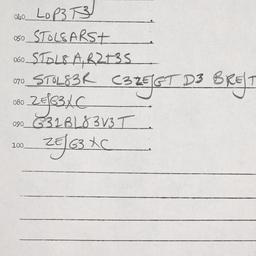 040 LOP3T3
050 STOL8ARST
060 STOL8A,RZT3S
070 STOL83R C3ZEJGT D3 BREJT
080 ZEJG3XC
090 G31BL83V3T
100 ZEJG3XC